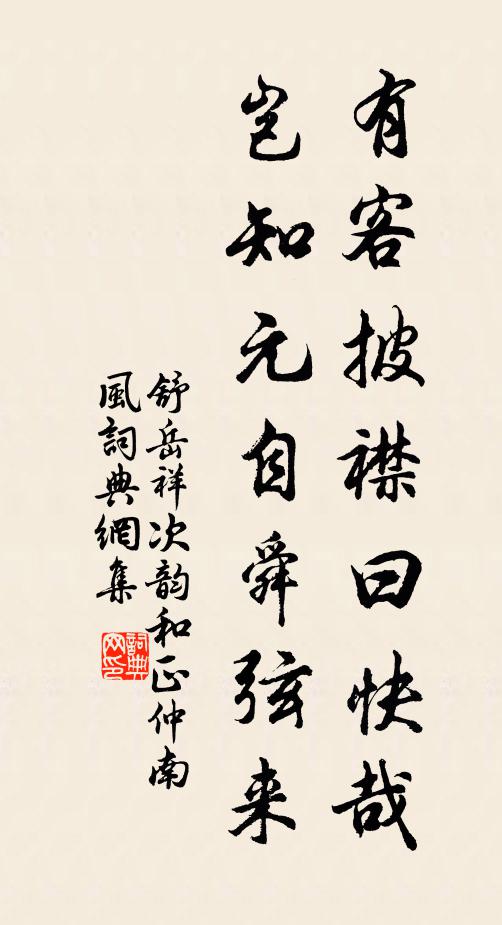 有客披襟曰快哉
岂知元自舜弦来
舒岳祥次韵和正仲南
風詞典網集
詞典网印